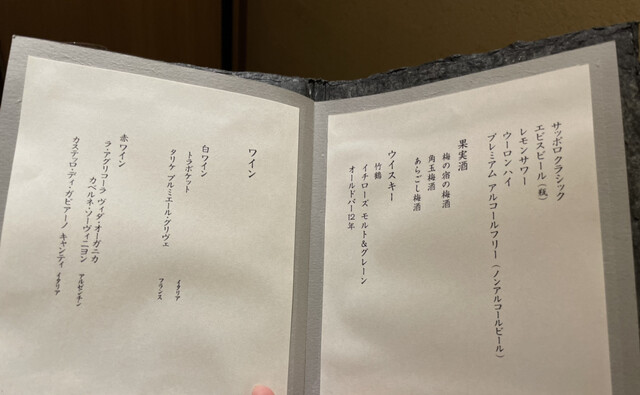 サッポロクラシック
エビスビール（瓶）
レモンサワー
ウーロンハイ
プレミアム アルコールフリー（ノンアルコールビール）
果実酒
梅の宿の梅酒
角玉梅酒
あらごし梅酒
ウイスキー
竹鶴
イチローズ モルト&グレーン
オールドパー12年
ワイン
白ワイン
トラポケット イタリア
タリケ プルミエール・グリヴェ フランス
赤ワイン
ラ・アグリコーラ ヴィダ・オーガニカ
カベルネ・ソーヴィニヨン アルゼンチン
カステッロ・ディ・ガビアーノ キャンティ イタリア